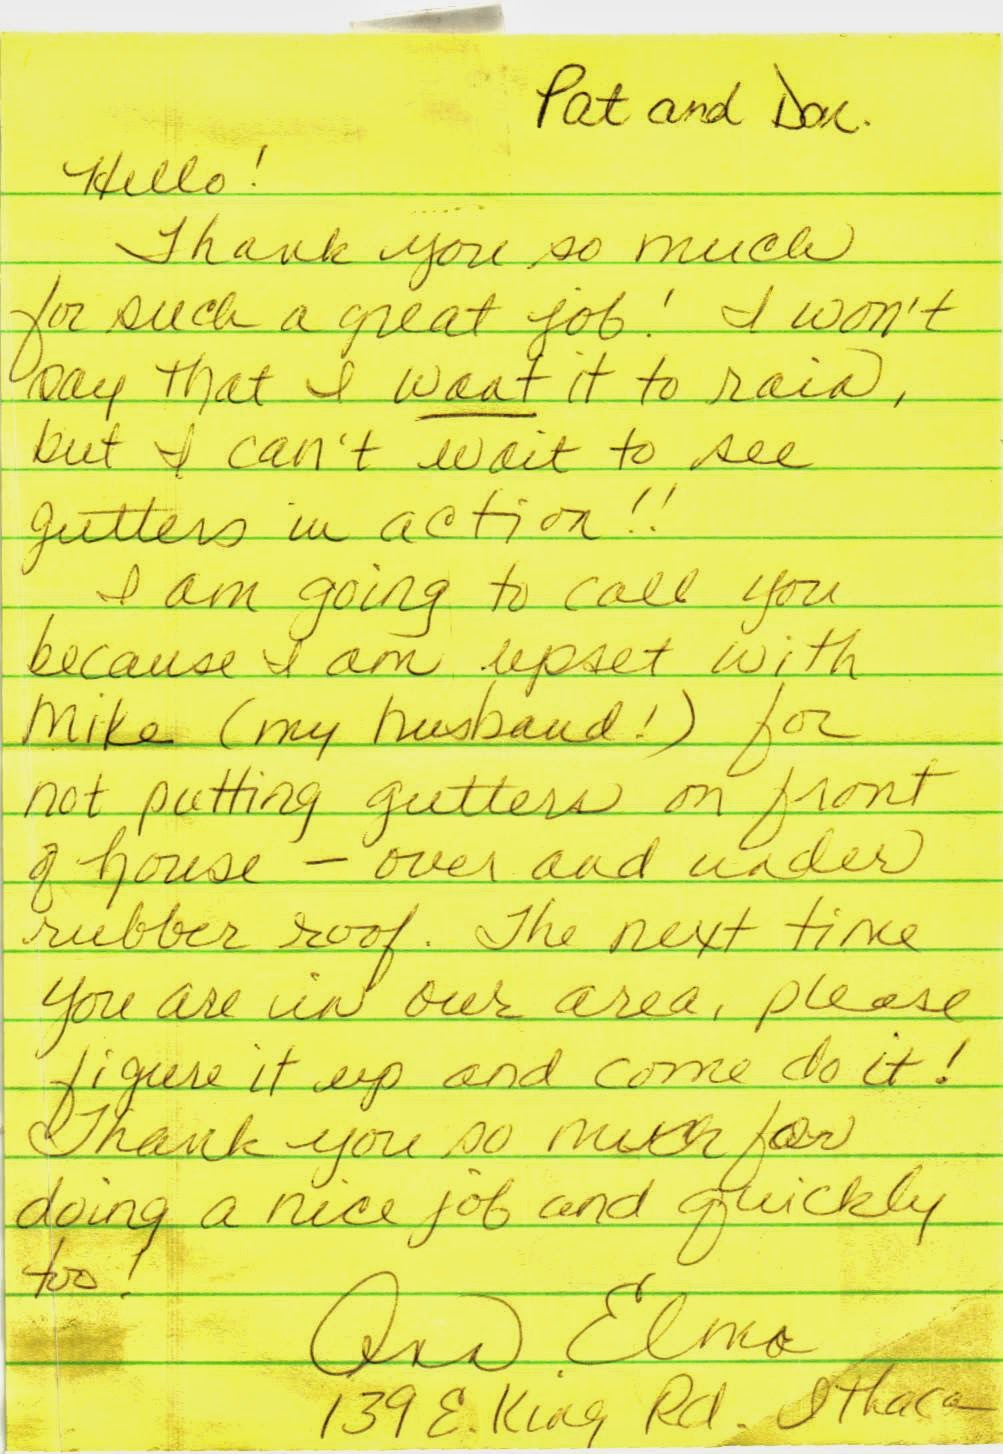 Pat and Don.
Hello!
Thank you so much
for such a great job! I won't
say that I want it to rain,
but I can't wait to see
gutters in action!!
I am going to call you
because I am upset with
Mike (my husband!) for
not putting gutters on front
of house – over and under
rubber roof. The next time
you are in our area, please
figure it up and come do it!
Thank you so much for
doing a nice job and quickly
too!
Ann Elmo
139 E. King Rd. Ithaca